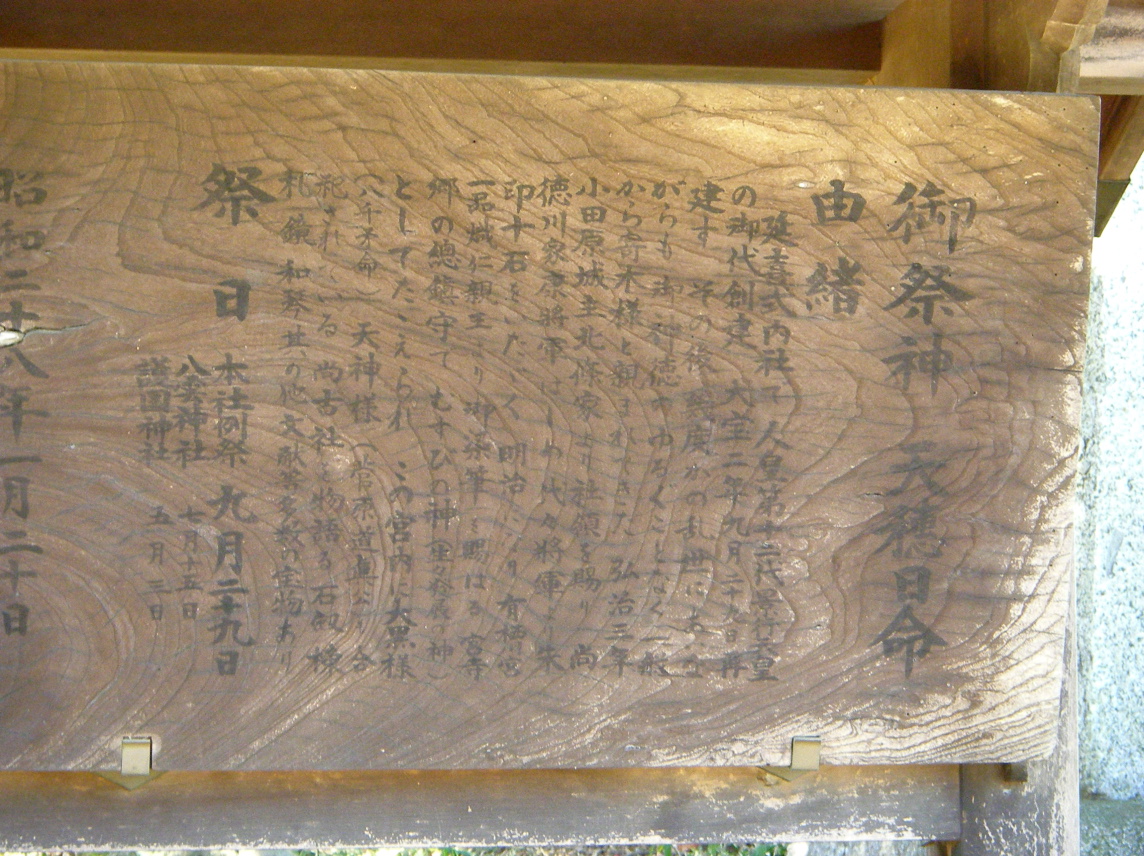 御祭神 天穂日命
由緒
延喜式内社で人皇第十二代景行天皇
の御代創建 大宝二年九月二十九日再
建す その後 幾度かの乱世にあいな
がらも御神徳はゆるぐことなく 一般
から寄木様と親まれてきた 弘治三年
小田原城主北條家より社領を賜り 尚
徳川家康将軍はじめ代々将軍より朱
印十石をいただく 明治になり有栖宮
一品熾仁親王より御染筆を賜はる 宮寺
郷の總鎮守で むすびの神(生々発展の神)
としてたたえられ この宮内に大黒様
(八千矛命) 天神様(菅原道真公)が合
祀されている 尚古社を物語る石剱 様
札 鏡 和琴 其の他文献等多数の宝物あり
祭日 本社例祭 九月二十九日
八雲神社 七月十五日
護国神社 五月三日
昭和二十八年一月二十日